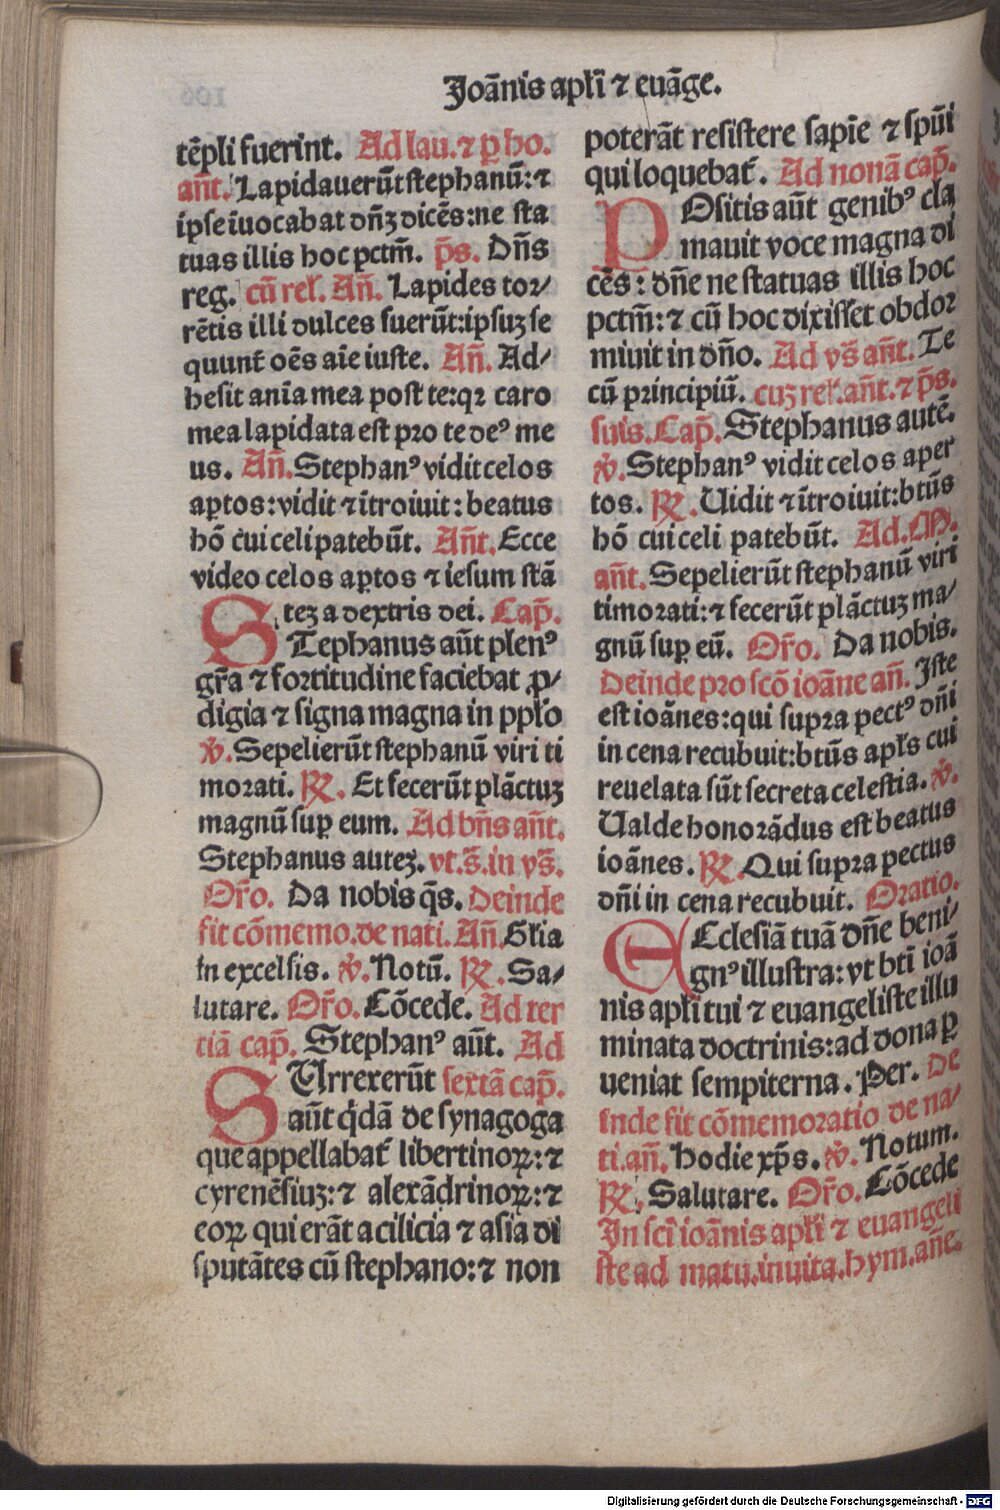 Joānis apłi ⁊ euāge.
tēpli fuerint. Ad lau.⁊ ꝑ ho.
añt. Lapidauerūt stephanū:⁊
ipse īuocabat dñꝫ dicēs:ne sta
tuas illis hoc pctm̄. p̄s. Dñs
reg. cū rel̄. Añ. Lapides tor⸗
rētis illi dulces fuerūt:ipsuꝫ se
quunt̄ oēs aīe iuste. Añ. Ad⸗
hesit anīa mea post te:qꝛ caro
mea lapidata est pro te deꝰ me
us. Añ. Stephanꝰ vidit celos
aptos:vidit ⁊ ītroiuit:beatus
hō cui celi patebūt. Añt. Ecce
video celos aptos ⁊ iesum stā
teꝫ a dextris dei. Cap̄.
STephanus aūt plenꝰ
gr̄a ⁊ fortitudine faciebat ꝓ⸗
digia ⁊ signa magna in pplo
℣. Sepelierūt stephanū viri ti
morati. ℟. Et fecerūt plāctuꝫ
magnū suꝑ eum. Ad bn̄s añt.
Stephanus auteꝫ. vt.s̄.in vs̄.
Or̄o. Da nobis q̄s. Deinde
fit cōmemo.de nati. Añ. Glia
in excelsis. ℣. Notū. ℟. Sa⸗
lutare. Or̄o. Cōcede. Ad ter
tiā cap̄. Stephanꝰ aūt. Ad
SUrrexerūt sextā cap̄.
aūt q̇dā de synagoga
que appellabat̄ libertinoꝝ:⁊
cyrenēsiuꝫ:⁊ alexādrinoꝝ:⁊
eoꝝ qui erāt a cilicia ⁊ asia di
sputātes cū stephano:⁊ non
poterāt resistere sapīe ⁊ spūi
qui loquebat̄. Ad nonā cap̄.
POsitis aūt genibꝰ cla
mauit voce magna di
cēs: dñe ne statuas illis hoc
pctm̄:⁊ cū hoc dixisset obdor
miuit in dño. Ad vs̄ añt. Te
cū principiū. cuꝫ rel̄.añt.⁊ p̄s.
suis. Cap̄. Stephanus autē.
℣. Stephanꝰ vidit celos aper
tos. ℟. Uidit ⁊ ītroiuit:btūs
hō cui celi patebūt. Ad.M.
añt. Sepelierūt stephanū viri
timorati:⁊ fecerūt plāctuꝫ ma⸗
gnū suꝑ eū. Or̄o. Da nobis.
Deinde pro scō ioāne añ. Iste
est ioānes:qui supra pectꝰ dñi
in cena recubuit:btūs apl̄s cui
reuelata sūt secreta celestia. ℣.
Ualde honorādus est beatus
ioānes. ℟. Qui supra pectus
dñi in cena recubuit. Oratio.
ECclesiā tuā dñe beni⸗
gnꝰ illustra:vt btī ioā
nis apłi tui ⁊ euangeliste illu
minata doctrinis:ad dona ꝑ
ueniat sempiterna. Per. De
inde fit cōmemoratio de na⸗
ti.añ. Hodie xp̄s. ℣. Notum.
℟. Salutare. Or̄o. Cōcede
In scī ioānis apłi ⁊ euangeli
ste ad matu.inuita.hym.añe.
Digitalisierung gefördert durch die Deutsche Forschungsgemeinschaft - DFG